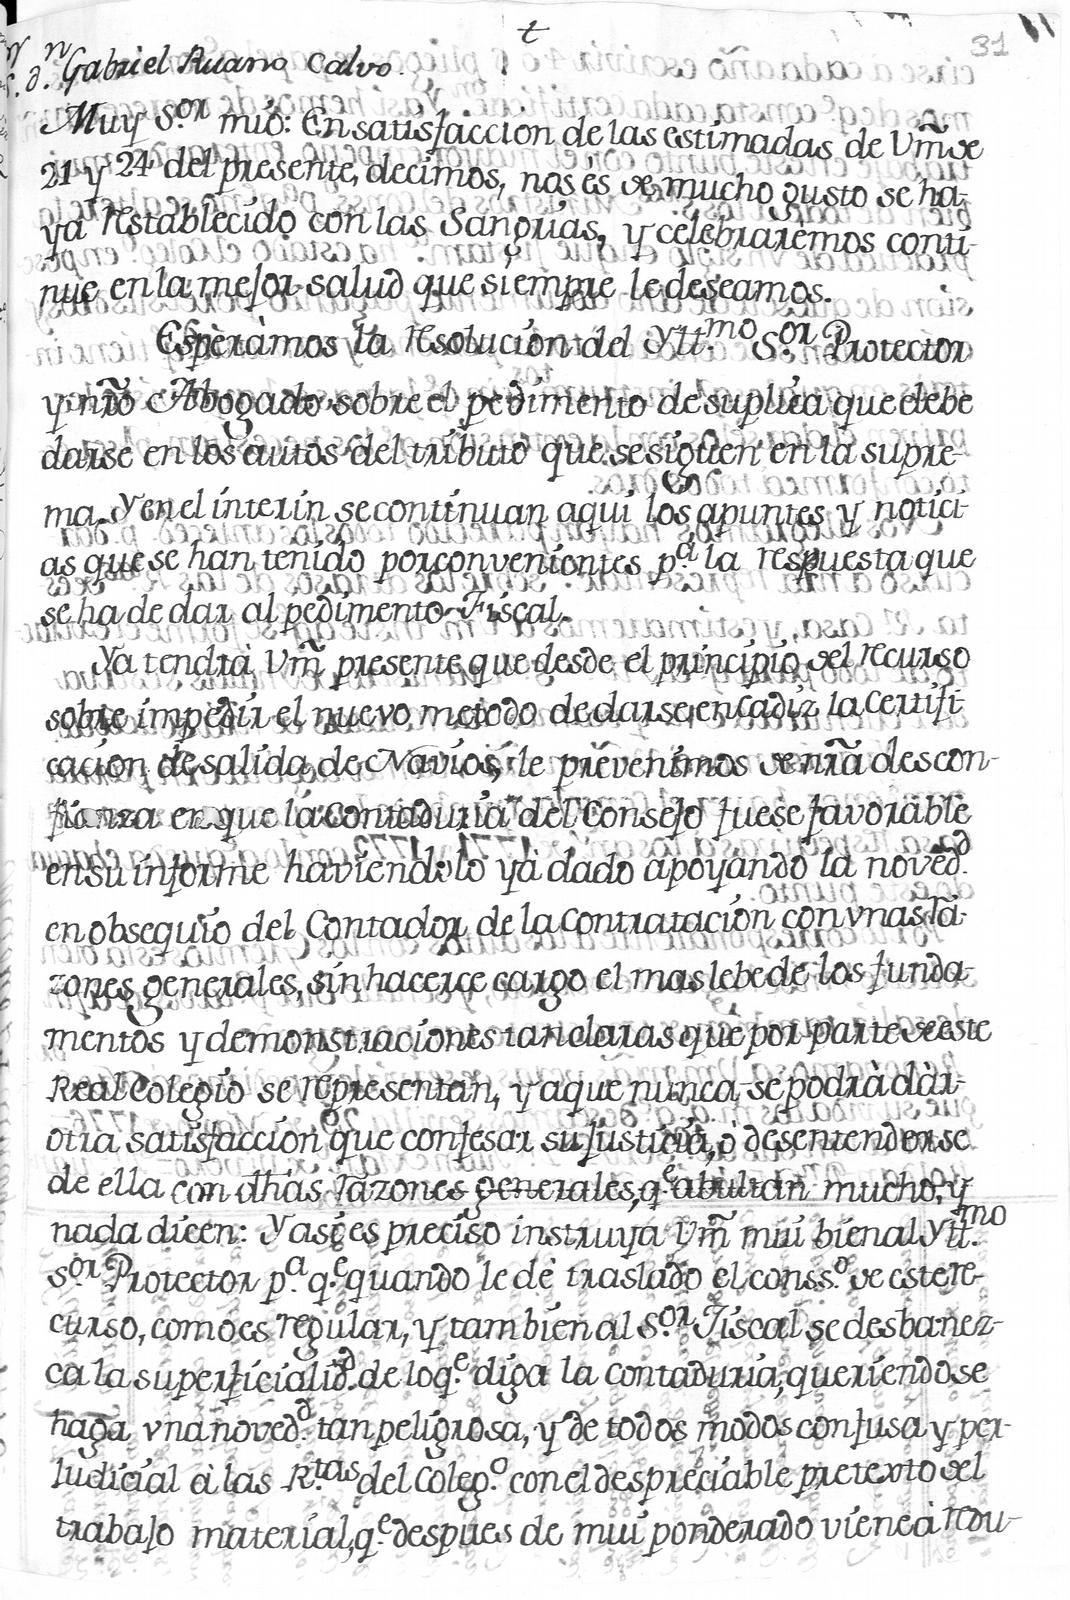 t
31
S. D.n Gabriel Ruano Calvo.
Muy S.or mio: En satisfaccion de las estimadas de Vm̃ de
21 y 24 del presente, decimos, nos és de mucho gusto se ha-
ya restablecido con las Sangrias, y celebrarémos conti-
nue en la mejor salud que siempre le deseamos.
Esperàmos la resolucion del Ytt.mo S.or Protector
y nr̃o Abogado sobre el pedimento de suplica que debe
darse en los autos del tributo que se siguen en la supre-
ma. Y en el interin se continuan aqui los apuntes y notici-
as que se han tenido por convenientes p.a la respuesta que
se ha de dar al pedimento Fiscal.
Ya tendrà Vm̃ presente que desde el principio del recurso
sobre impedir el nuevo metodo de darse en Cadiz la certifi
cacion de salida de Navios, le prevenimos de nr̃a descon-
fianza en que la Contaduria del Consejo fuese favorable
en su informe haviendolo yà dado apoyando la noved.d
en obsequio del Contador de la Contratacion con vnas rà-
zones generales, sin hacerce cargo el mas lebe de los funda-
mentos y demonstraciones tan claras que por parte de este
Real Colegio se representan, y a que nunca se podrà dar
otra satisfaccion que confesar su justicia, ò desentenderse
de ella con dhas razones generales, q.e abultan mucho, y
nada dicen: Y asi es preciso instruya Vm̃ mui bien al Ytt.mo
S.or Protector p.a q.e quando le dè traslado el Cons.o de este re-
curso, como es regular, y tambien al S.or Fiscal se desbanez-
ca la superficialid.d de lo q.e diga la Contaduria, queriendo se
haga vna noved.d tan peligrosa, y de todos modos confusa y per-
judicial à las R.tas del Coleg.o con el despreciable pretexto del
trabajo material, q.e despues de mui ponderado viene à redu-